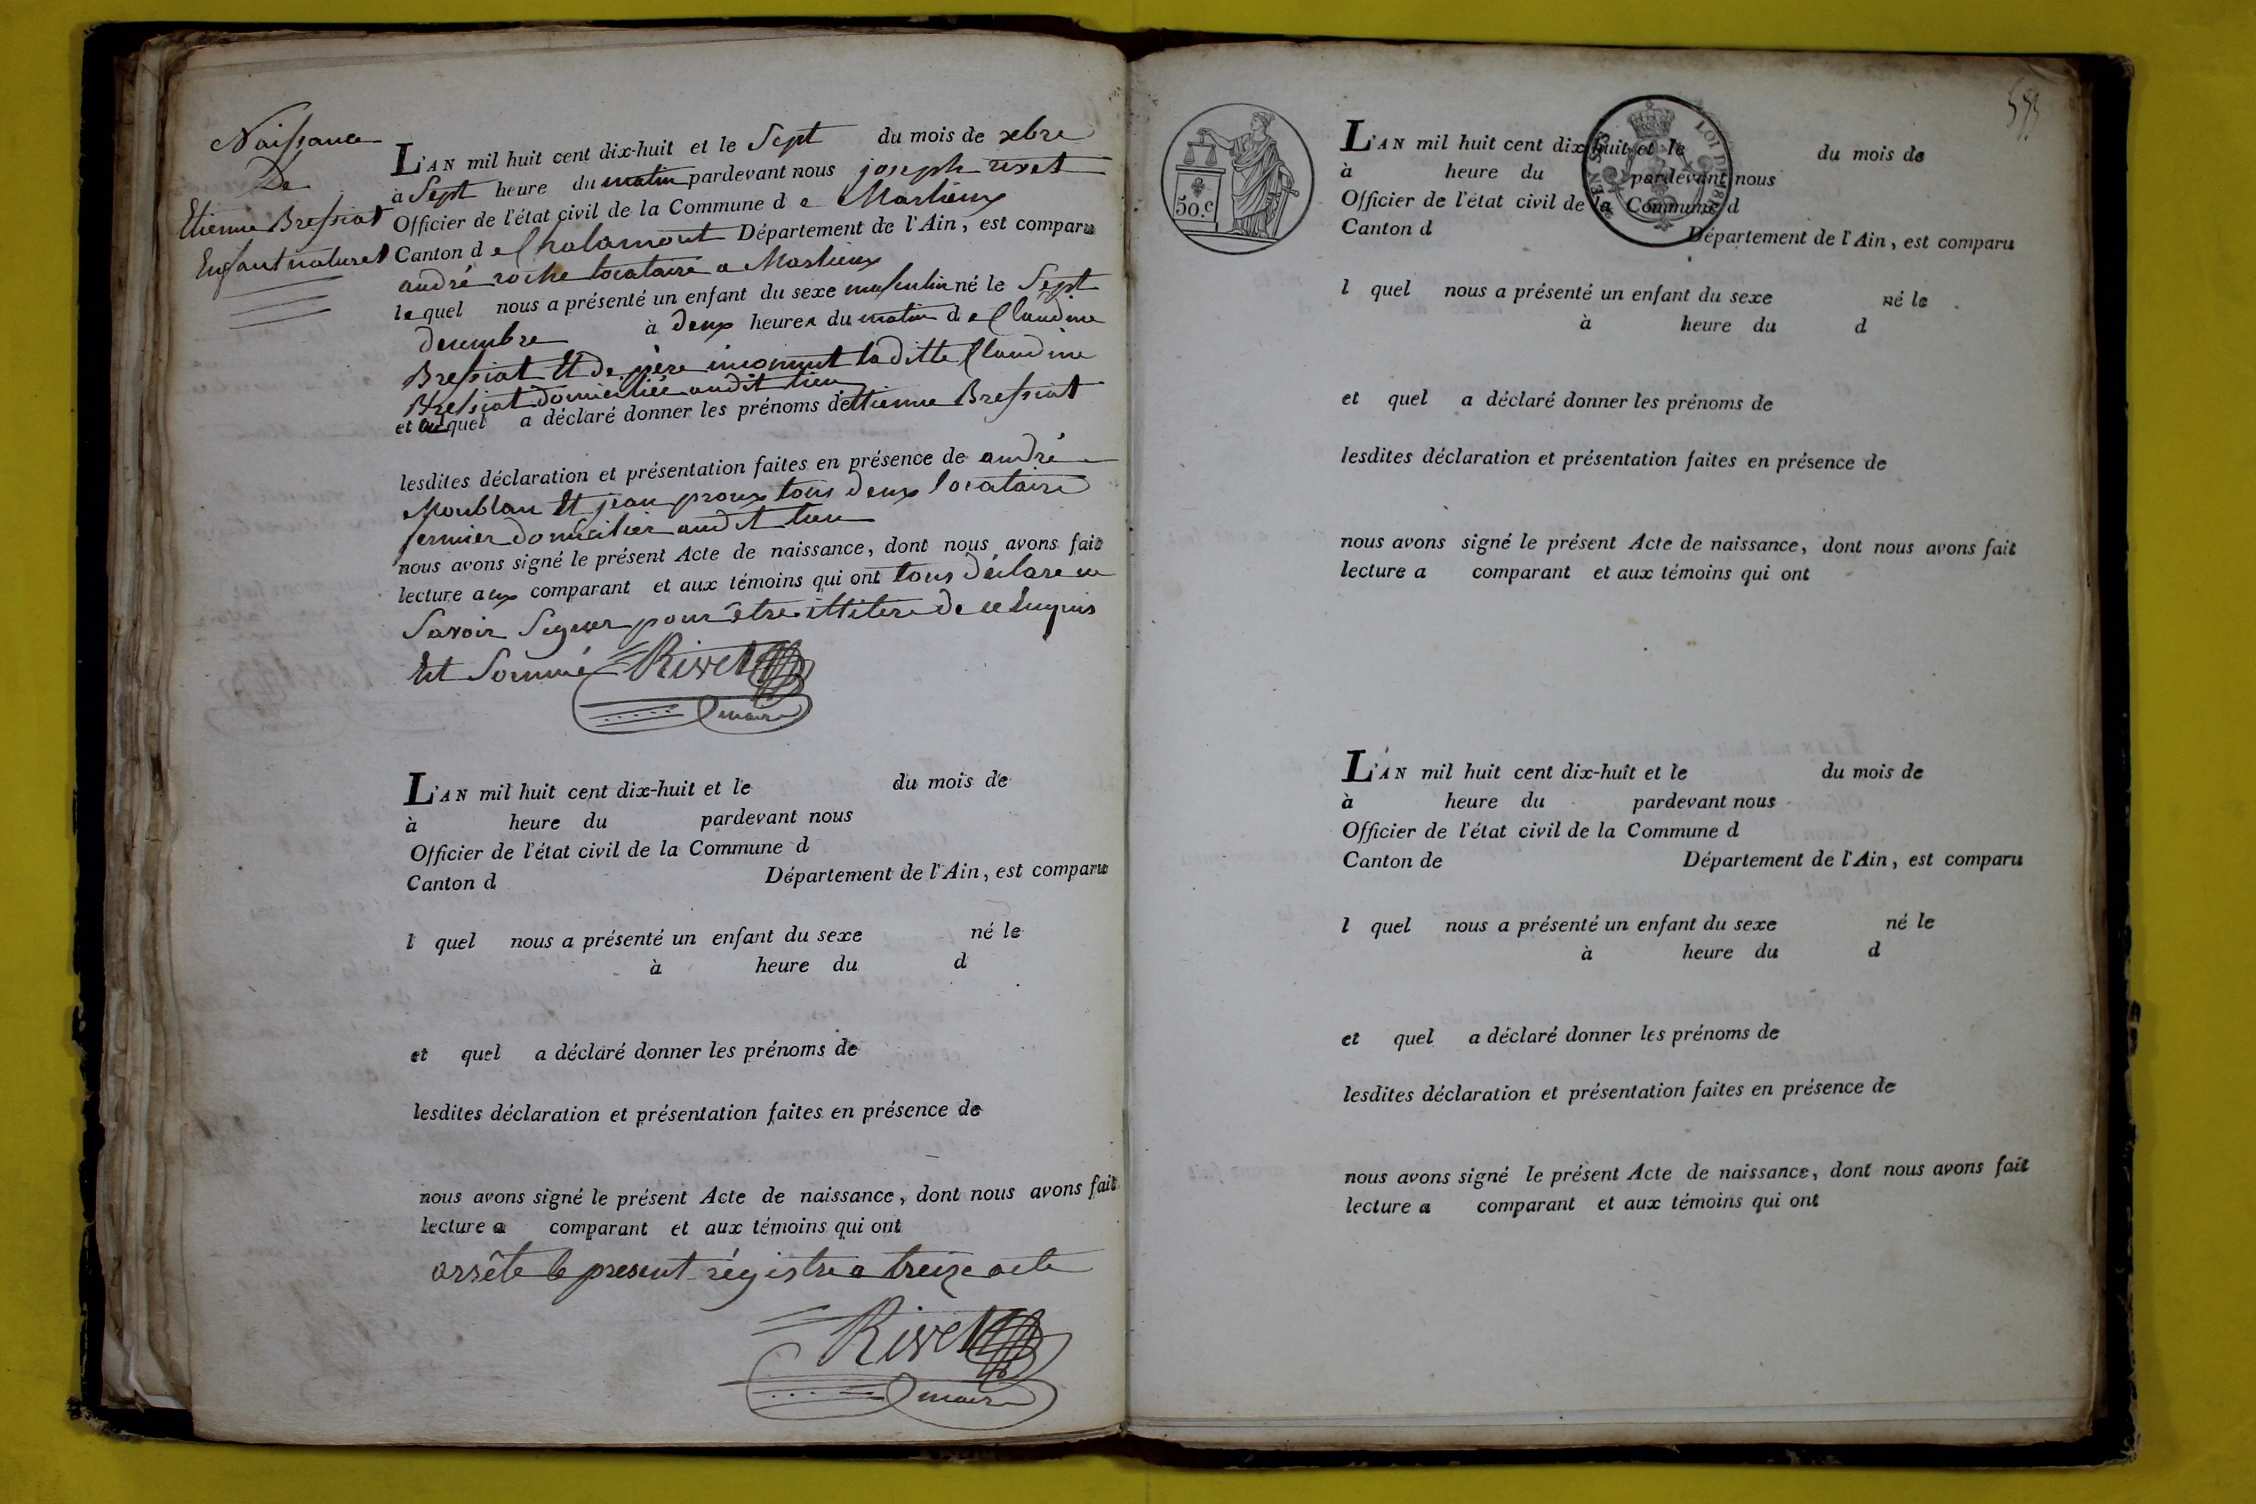 Naissance
De
Etienne Bressiat
Enfant naturel
L'AN mil huit cent dix-huit et le Sept du mois de xbre
à Sept heure du matin pardevant nous joseph rivet
Officier de l'état civil de la Commune de Marlieux
Canton de Chalamont Département de l'Ain, est comparu
andré roche locataire a Marlieux
lequel nous a présenté un enfant du sexe masculin né le Sept
decembre à deux heures du matin de Claudine
Bressiat Et de père inconnut laditte Claudine
Bressiat domiciliée audit lieu
et auquel a déclaré donner les prénoms de Etienne Bressiat
lesdites déclaration et présentation faites en présence de andré
Moublan Et jean proux tous deux locataire
fermier domicilier audit lieu
nous avons signé le présent Acte de naissance, dont nous avons fait
lecture aux comparant et aux témoins qui ont tous déclare ne
Savoir Signer pour être illitere de ce Enquis
Et Sommé Rivet
maire
L'AN mil huit cent dix-huit et le du mois de
à heure du pardevant nous
Officier de l'état civil de la Commune d
Canton d Département de l'Ain, est comparu
l quel nous a présenté un enfant du sexe né le
à heure du d
et quel a déclaré donner les prénoms de
lesdites déclaration et présentation faites en présence de
nous avons signé le présent Acte de naissance, dont nous avons fait
lecture a comparant et aux témoins qui ont
arrête le present régistre a treize acte
Rivet
maire
50.c
LOI DE
L'AN mil huit cent dix-huit et le du mois de
à heure du pardevant nous
Officier de l'état civil de la Commune d
Canton d Département de l'Ain, est comparu
l quel nous a présenté un enfant du sexe né le
à heure du d
et quel a déclaré donner les prénoms de
lesdites déclaration et présentation faites en présence de
nous avons signé le présent Acte de naissance, dont nous avons fait
lecture a comparant et aux témoins qui ont
L'AN mil huit cent dix-huit et le du mois de
à heure du pardevant nous
Officier de l'état civil de la Commune d
Canton de Département de l'Ain, est comparu
l quel nous a présenté un enfant du sexe né le
à heure du d
et quel a déclaré donner les prénoms de
lesdites déclaration et présentation faites en présence de
nous avons signé le présent Acte de naissance, dont nous avons fait
lecture a comparant et aux témoins qui ont